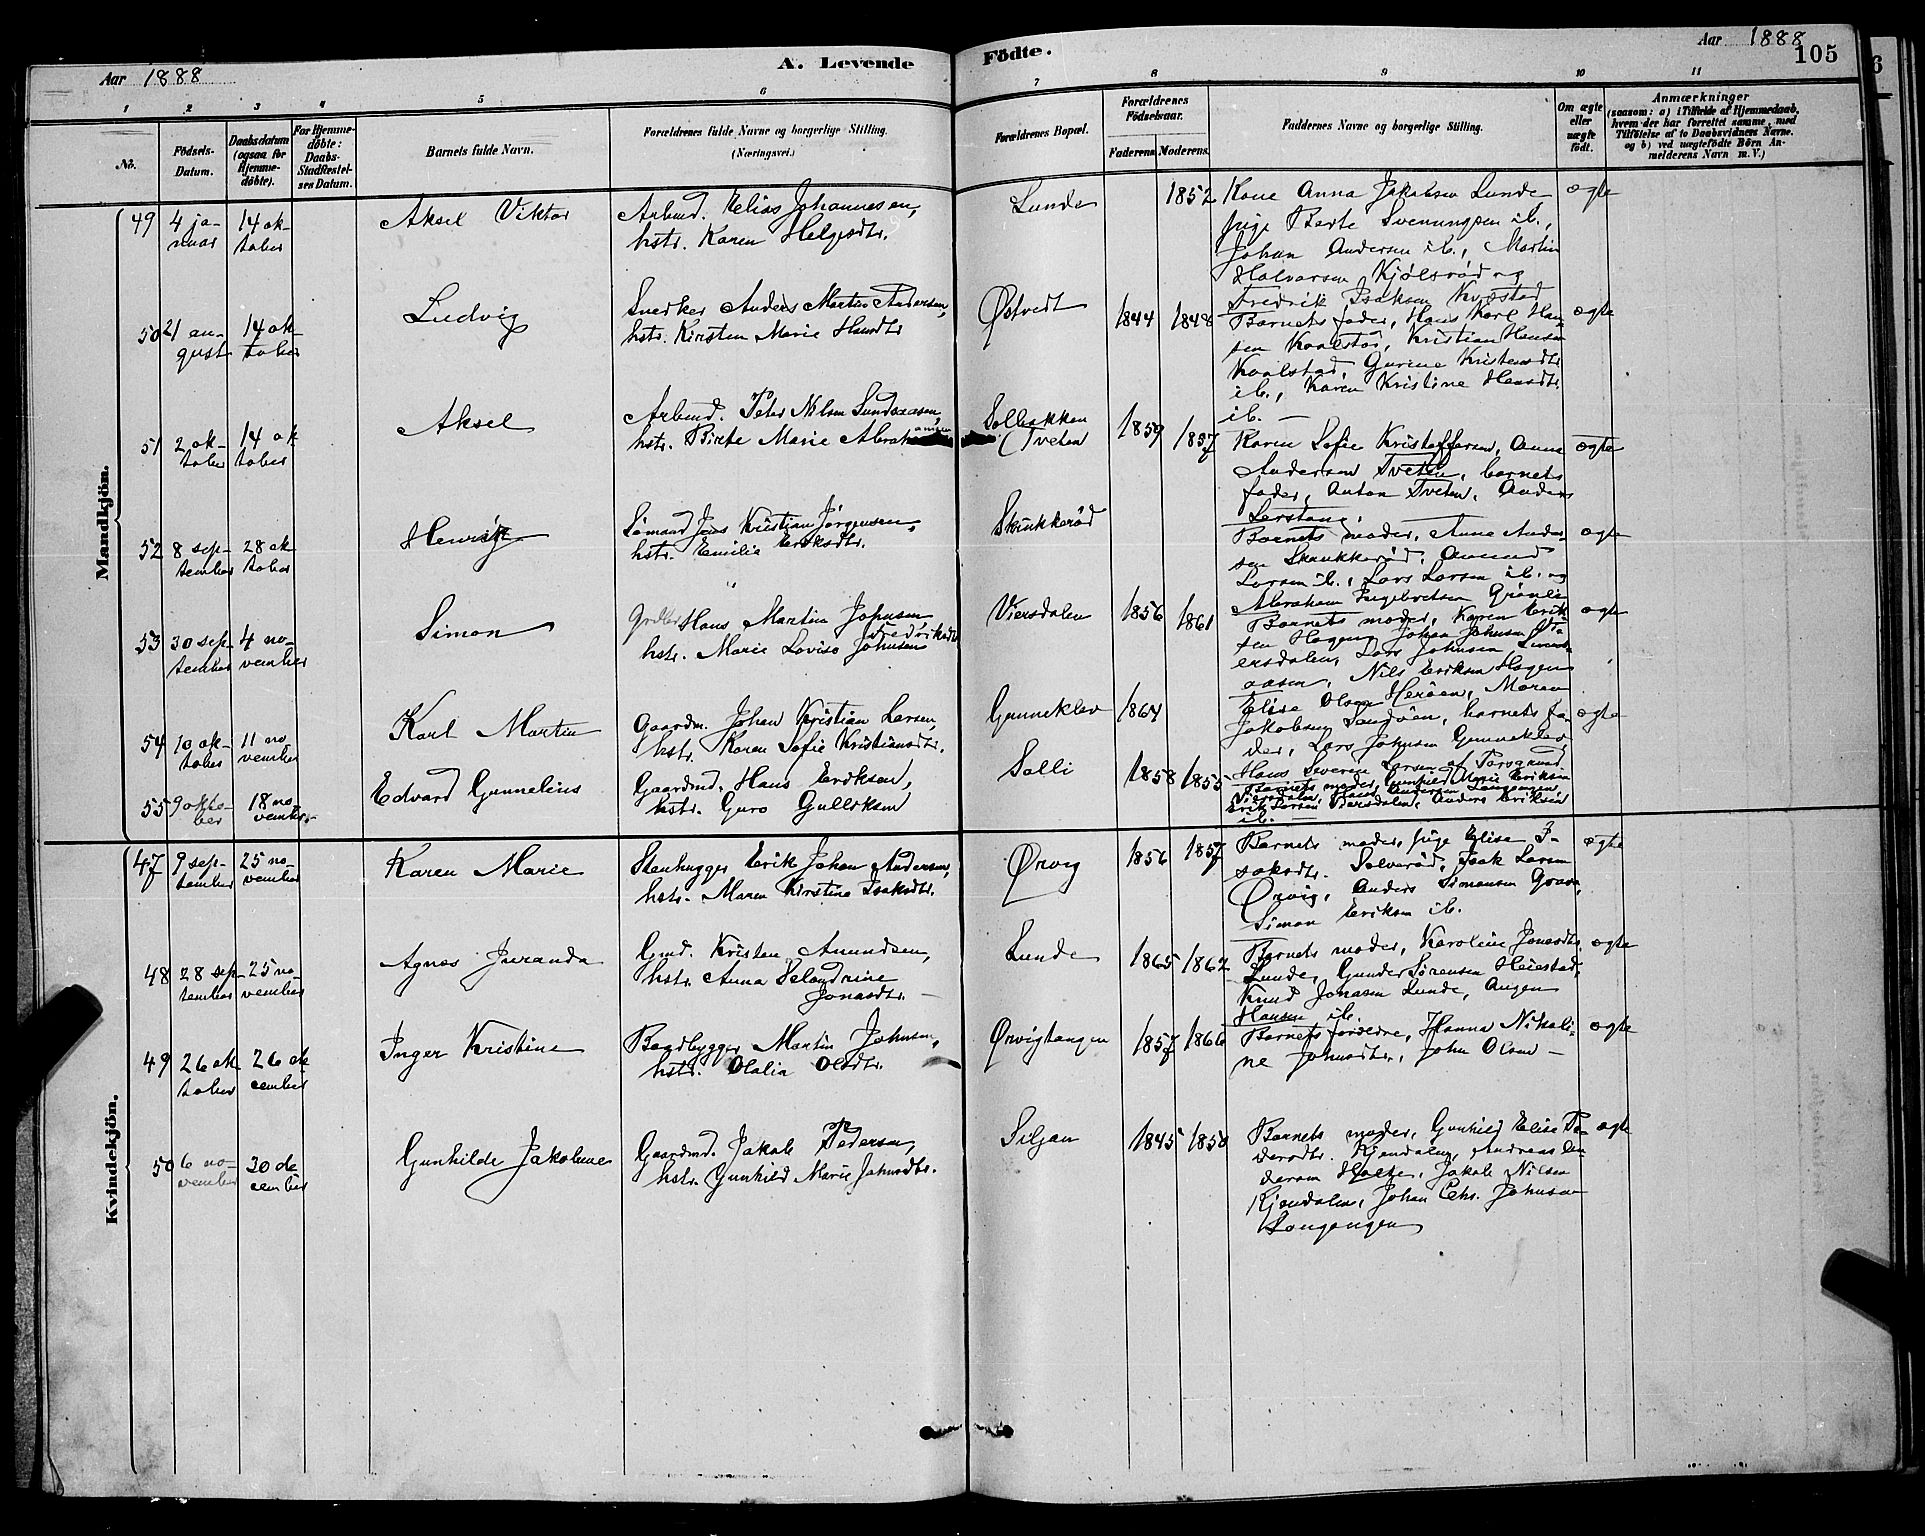 Aar 1888
A. Levende
Födte.
Aar 1888
105
1 2 3 4 5 6 7 8 9 10 11
No.
Födsels-
Datum.
Daabsdatum
(ogsaa for
Hjemme-
döbte).
For Hjemme-
döbte:
Daabs-
Stadfæstel-
ses Datum.
Barnets fulde Navn.
Forældrenes fulde Navne og borgerlige Stilling.
(Næringsvei.)
Forældrenes Bopæl.
Forældrenes
Födselsaar.
Faderens. Moderens.
Faddernes Navne og borgerlige Stilling.
Om ægte
eller
uægte
födt.
Anmærkninger
(saasom: a) i Tilfælde af Hjemmedaab,
hvem der har forrettet samme, med
Tilföielse af to Daabsvidners Navne.
og b) ved uægtefödte Börn An-
melderens Navn m. V.)
Mandkjön.
49 4 ja-
nuar
14 ok-
tober
Aksel Viktor
Arbmd. Kelias Johannesen,
hstr. Karen Helgesdtr.
Lunde
1852
Kone Anna Jakobsen Lunde
pige Berte Svenungsen ib.,
Johan Andersen ib., Martin
Halvorsen Kjölsröd og
Fredrik Isaksen Kvæstad
ægte
50 21 au-
gust
14 ok-
tober
Ludvig
Snedker Anders Martin Andersen,
hstr. Kirsten Marie Hansdtr
Østvedt
1844 1848
Barnets fader, Hans Karl Han-
sen Kvalstad, Kristian Hansen
Kvalstad, Gurine Kristensdtr
ib., Karen Kristine Hansdtr.
ib. —
ægte
51 2 ok-
tober
14 ok
tober
Aksel
Arbmd. Peter Nilsen Sundsaasen,
hstr. Birte Marie Abrahamsen
Solbakken
(Tveten
1859 1857
Karen Sofie Kristoffersen, Anne
Andersen Tveten, barnets
fader, Anton Tveten, Anders
Lerstang.
ægte
52 8 sep-
tember
28 ok
tober
Henrik
Sömand Jens Kristian Jörgensen,
hstr. Emilie Eriksdtr.
Skrukkeröd
Barnets moder, Anne Ander-
sen Skrukkeröd, Amund
Larsen ib., Lars Larsen ib. og
Abraham Ingebretsen Grönli
ægte
53 30 sep-
tember
4 no-
vember
Simon
Grdbr Hans Martin Johnsen,
hstr. Marie Lovise Johnsen
Fredriksdtr
Viersdalen
1856 1861
Barnets moder, Karen Erik-
sen Hagen, Johan Johnsen Vi-
ersdalen, Lars Johnsen
aasen, Nils Eriksen Hagen
ægte
54 10 ok-
tober
11 no
vember
Karl Martin
Gaardm. Johan Kristian Larsen,
hstr. Karen Sofie Kristiansdtr.
Gunneklev
1864
Elise Olsen Heröen, Maren
Jakobsen Sandöen, barnets fa-
der, Lars Johnsen Gunneklev
Hans Severin Larsen af Porsgrund
ægte
55 9 okto-
ber
18 no-
vember
Edvard Gunnelius
Gaardmd. Hans Eriksen,
hstr. Guro Gulliksen
Solli
1858 1855
Barnets moder, Gunhild Marie Eriksen
Viersdalen, Hans Andersen Langangen,
Erik Larsen Viersdalen, Anders Eriksen
ib. —
Kvindekjön.
47 9 sep-
tember
25 no-
vember
Karen Marie
Stenhugger Erik Johan Andersen,
hstr. Maren Kirstine Isaksdtr.
Ørvig
1856 1857
Barnets moder, pige Elise I-
saksdtr. Solveröd, Isak Larsen
Ørvig, Anders Simonsen Grava,
Simon Eriksen ib.
ægte
48 28 sep
tember
25 no-
vember
Agnes Juranda
Kristen Amundsen,
hstr. Anna Helandrine
Jonasdtr. —
Lunde
1865 1862
Barnets moder, Karoline Jonasdtr.
Lunde, Gunder Sörensen Heiestad,
Knud Jonasen Lunde, Augen
Hansen ib.
ægte
49 26 ok
tober
26 de
cember
Inger Kristine
Baadbygger Martin Johnsen,
hstr. Olalia Olsdtr.
Ørvigtangen
1857 1866
Barnets foreldre, Hanna Nikoli-
ne Johnsdtr., John Olsen —
ægte
50 6 no-
vember
30 de
cember
Gunhilde Jakobine
Gaardmd. Jakob Pedersen,
hstr. Gunhild Marie Johnsdtr.
Siljan
1845 1850
Barnets moder, Gunhild Elise Pe-
dersdtr. Kjendalen, Andreas
Holte, Jakob Nilsen
Kjendalen, Johan Chr. Johnsen
Langangen
ægte